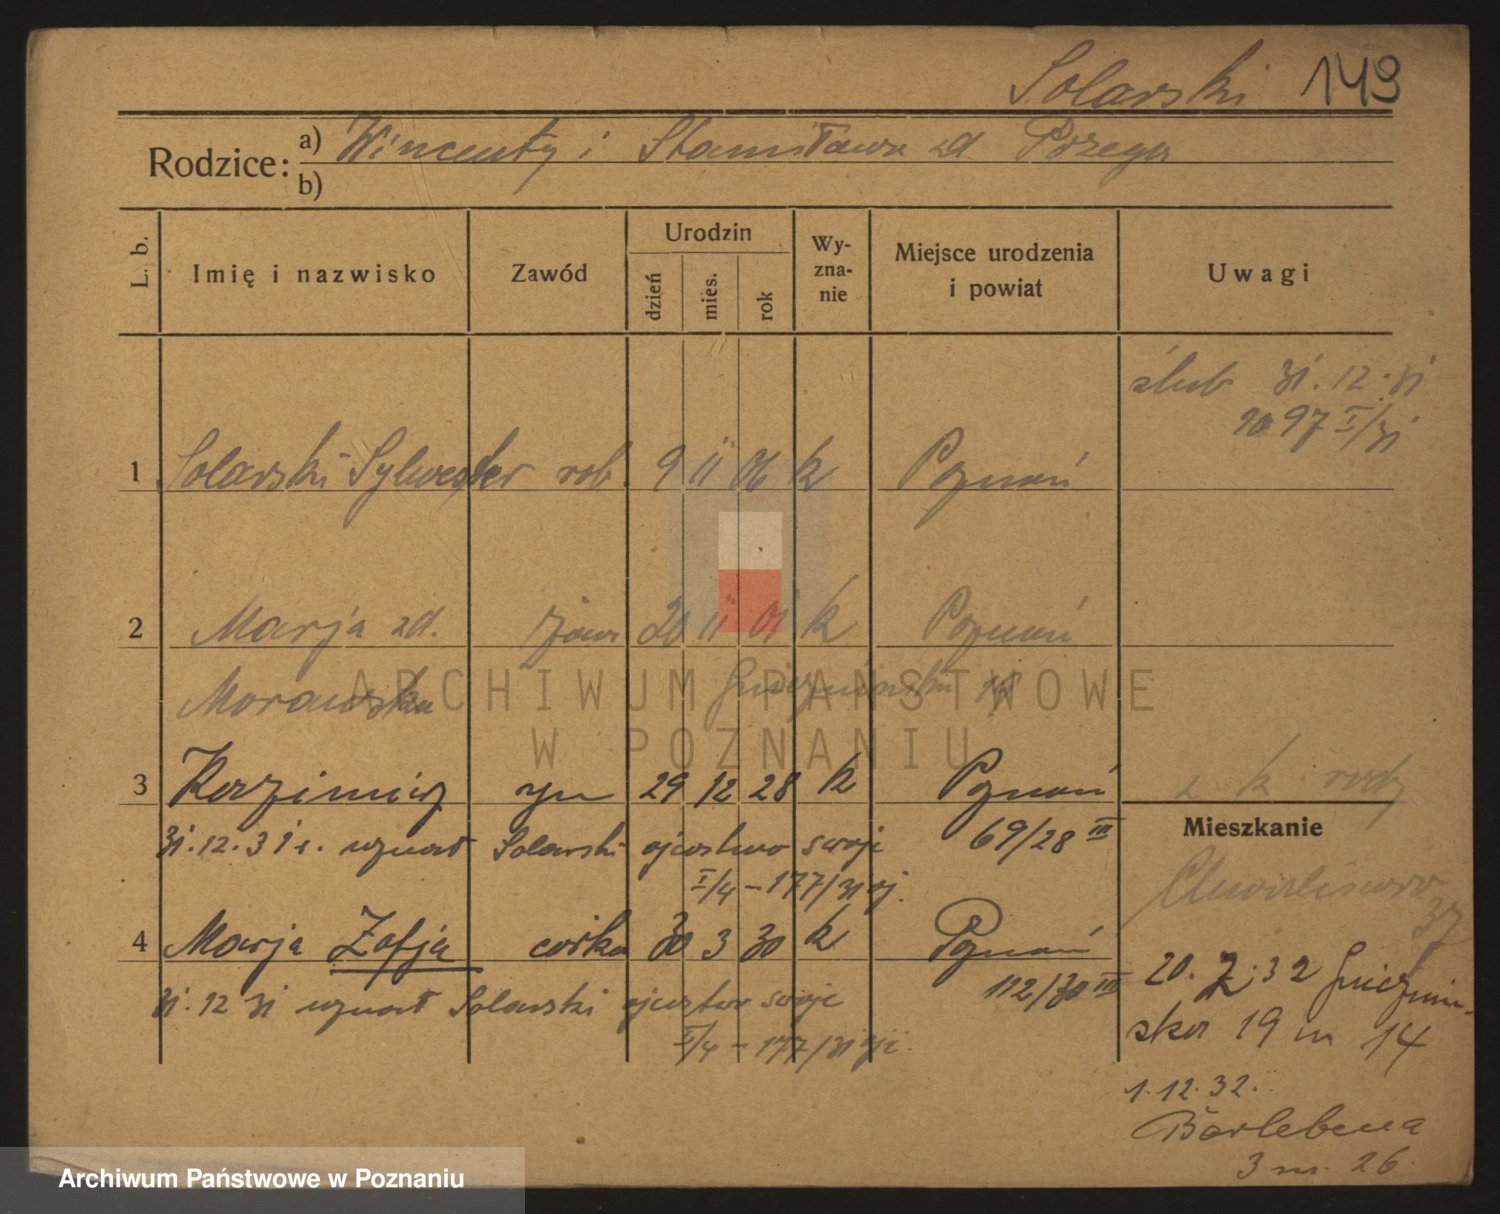 Solarski 149
Rodzice: a) Wincenty i Stanisława zd
b)
L. b.
Imię i nazwisko
Zawód
Urodzin
dzień
mies.
rok
Wy-
zna-
nie
Miejsce urodzenia
i powiat
Uwagi
ślub 31.12.31
97 I/31
1 Solarski Sylwester rob. 9 11 06 k Poznań
2 Marja zd. żona 20 11 01 k Poznań
Morawska
3 Kazimierz syn 29 12 28 k Poznań
69/28 III
31.12.31 r. uznał Solarski ojcostwo swoje
I/4 - 177/31
4 Marja Zofja córka 30 3 30 k Poznań
112/30 III
31.12 31 uznał Solarski ojcostwo swoje
I/4 - 177/31
Mieszkanie
37
20.2.32 Gnieźnień-
ska 19 m 14
1.12.32.
Barlebena
3 m. 26
ARCHIWUM PAŃSTWOWE
W POZNANIU
Archiwum Państwowe w Poznaniu